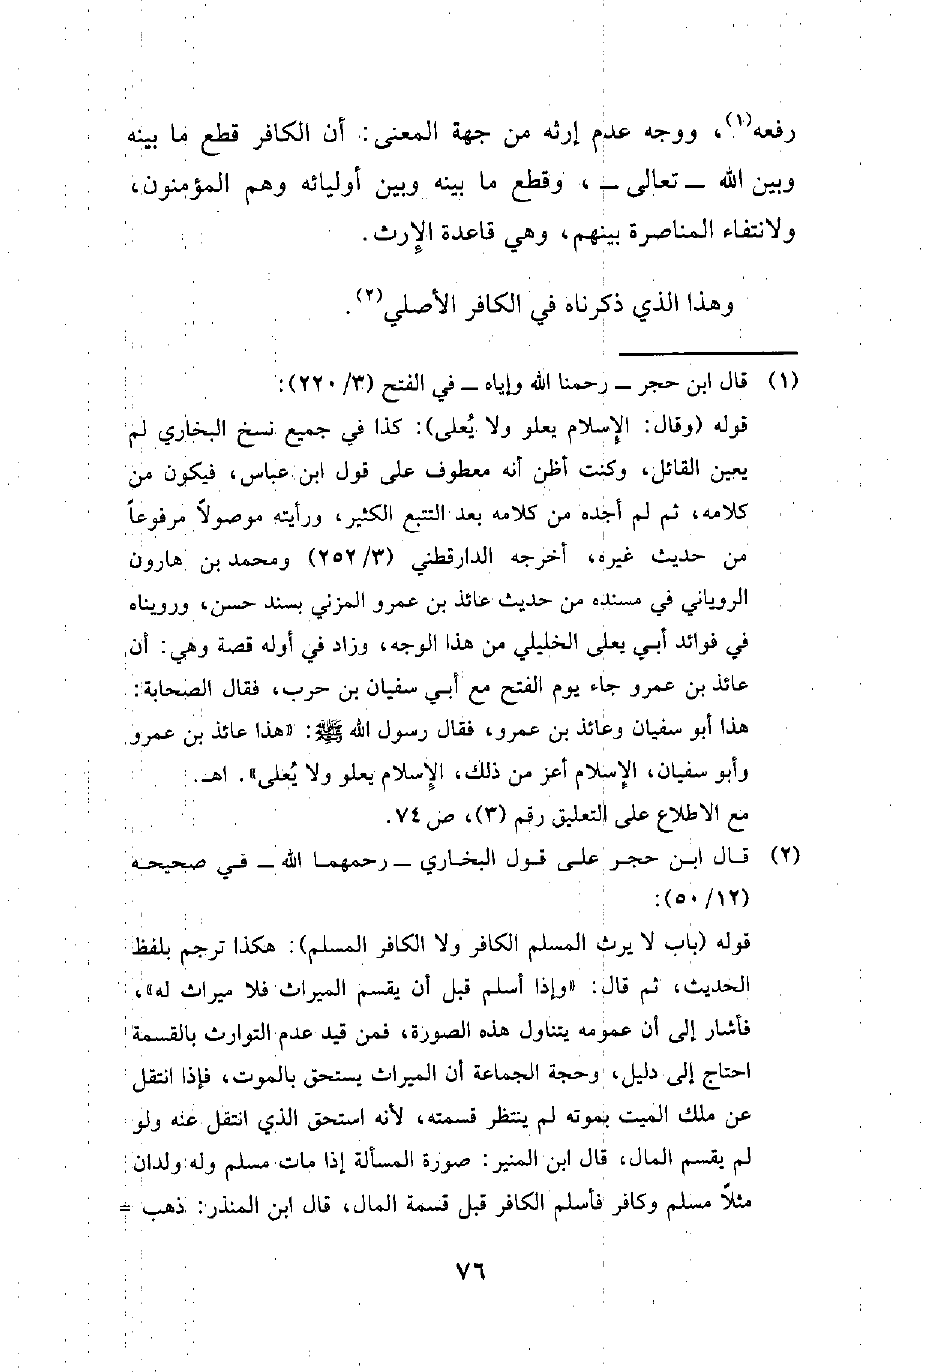 رفعه(١)، ووجه عدم إرثه من جهة المعنى: أن الكافر قطع ما بينه
وبين الله ــ تعالى ــ ، وقطع ما بينه وبين أوليائه وهم المؤمنون،
ولانتفاء المناصرة بينهم، وهي قاعدة الإرث.
وهذا الذي ذكرناه في الكافر الأصلي(٢).
(١) قال ابن حجر ــ رحمنا الله وإياه ــ في الفتح (٣/ ٢٢٠):
قوله (وقال: الإسلام يعلو ولا يُعلى): كذا في جميع نسخ البخاري لم
يعين القائل، وكنت أظن أنه معطوف على قول ابن عباس، فيكون من
كلامه، ثم لم أجده من كلامه بعد التتبع الكثير، ورأيته موصولاً مرفوعاً
من حديث غيره، أخرجه الدارقطني (٣/ ٢٥٢) ومحمد بن هارون
الروياني في مسنده من حديث عائذ بن عمرو المزني بسند حسن، ورويناه
في فوائد أبي يعلى الخليلي من هذا الوجه، وزاد في أوله قصة وهي: أن
عائذ بن عمرو جاء يوم الفتح مع أبي سفيان بن حرب، فقال الصحابة:
هذا أبو سفيان وعائذ بن عمرو، فقال رسول الله ﷺ: «هذا عائذ بن عمرو
وأبو سفيان، الإسلام أعز من ذلك، الإسلام يعلو ولا يُعلى». اهـ.
مع الاطلاع على التعليق رقم (٣)، ص ٧٤.
(٢) قال ابن حجر على قول البخاري ــ رحمهما الله ــ في صحيحه
(١٢/ ٥٠):
قوله (باب لا يرث المسلم الكافر ولا الكافر المسلم): هكذا ترجم بلفظ
الحديث، ثم قال: «وإذا أسلم قبل أن يقسم الميراث فلا ميراث له»،
فأشار إلى أن عمومه يتناول هذه الصورة، فمن قيد عدم التوارث بالقسمة
احتاج إلى دليل، وحجة الجماعة أن الميراث يستحق بالموت، فإذا انتقل
عن ملك الميت بموته لم ينتظر قسمته، لأنه استحق الذي انتقل عنه ولو
لم يقسم المال، قال ابن المنير: صورة المسألة إذا مات مسلم وله ولدان
مثلاً مسلم وكافر فأسلم الكافر قبل قسمة المال، قال ابن المنذر: ذهب =
٧٦